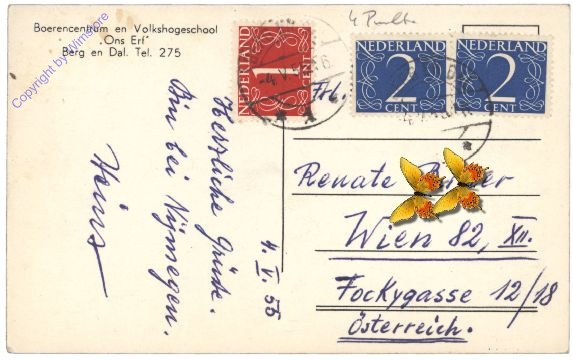 4 Punkte
Boerencentrum en Volkshogeschool
„Ons Erf”
Berg en Dal. Tel. 275
Copyright by Winstore
NEDERLAND
1
CENT
NEDERLAND
2
CENT
NEDERLAND
2
CENT
4. V. 55
Herzliche Grüße.
Bin bei Nijmegen.
Heinz
Frl.
Renate
Wien 82, XII.
Fockygasse 12/18
Österreich.